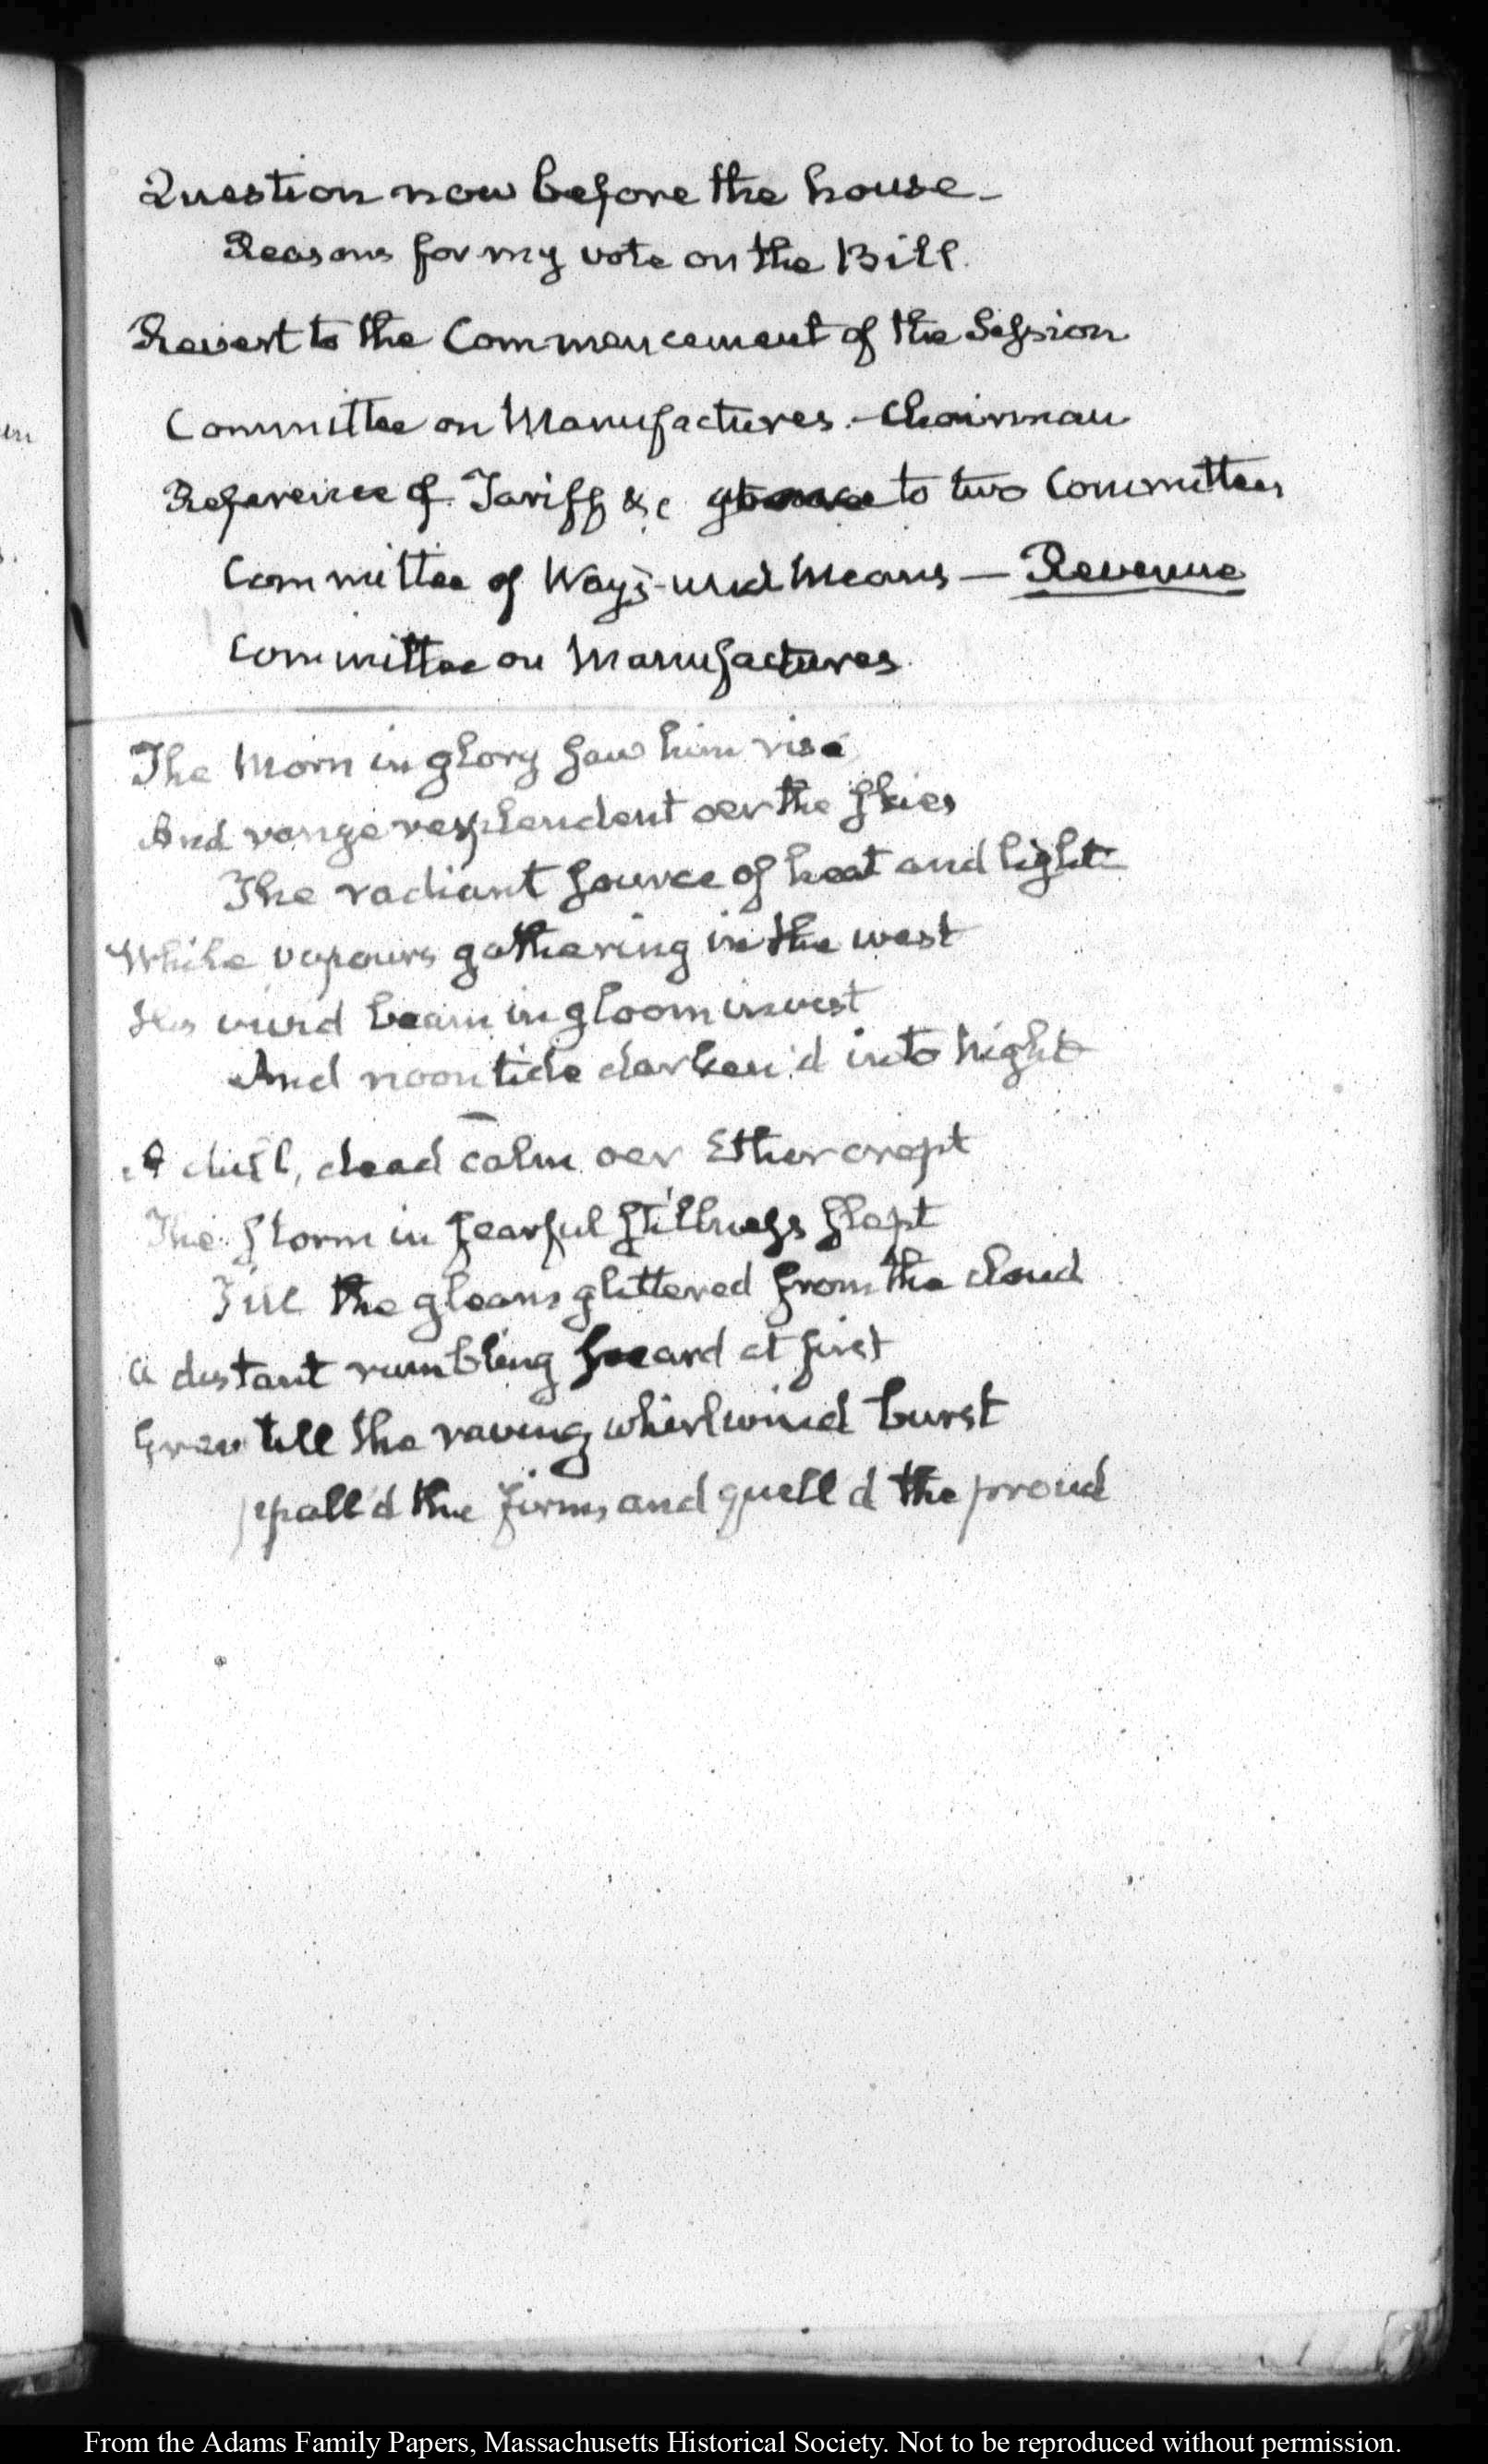 Question now before the house_
Reasons for my vote on the Bill.
Revert to the Commencement of the Session
Committee on Manufactures. - Chairman
Reference of Tariff &c to two Committees
Committee of Ways and Means — Revenue
Committee on Manufactures.
The Morn in glory saw him rise
And range resplendent oer the skies
The radiant source of heat and light
While vapours gathering in the west
His vivid beam in gloom invest
And noontide darken'd into Night
A dull, dead calm oer Ether crept
The storm in fearful stillness slept
Till the gleams glittered from the cloud
a distant rumbling heard at first
Grew till the raving whirlwind burst
the firm, and quell'd the proud
in
s.
From the Adams Family Papers, Massachusetts Historical Society. Not to be reproduced without permission.